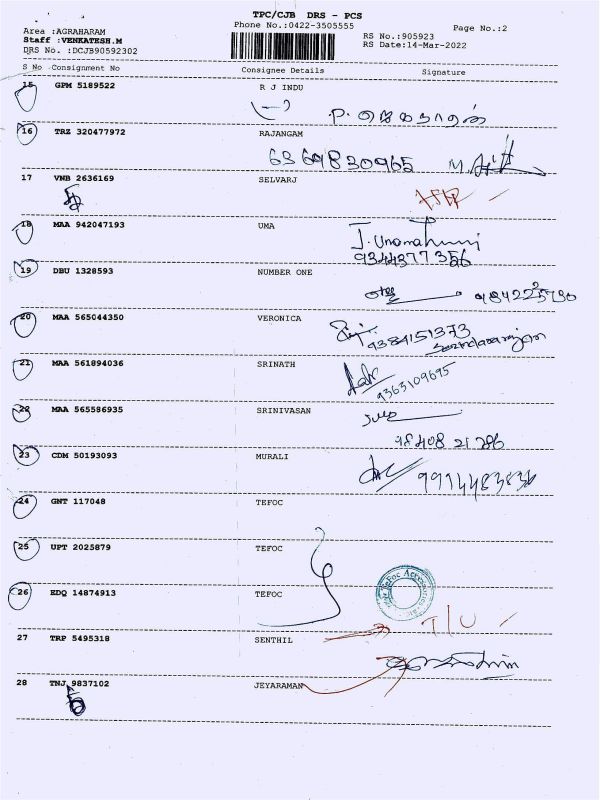 TPC/CJB DRS - PCS
Phone No.:0422-3505555
Page No.:2
Area :AGRAHARAM
Staff :VENKATESH.M
DRS No. :DCJB90592302
RS No.:905923
RS Date:14-Mar-2022
S No Consignment No Consignee Details Signature
15 GPM 5189522 R J INDU
P. ஜெகநாதன்
16 TRZ 320477972 RAJANGAM
6369830965
17 VNB 2636169 SELVARJ
18 MAA 942047193 UMA
9344377356
19 DBU 1328593 NUMBER ONE
20 MAA 565044350 VERONICA
9384151373
21 MAA 561894036 SRINATH
9363109695
22 MAA 565586935 SRINIVASAN
98408 21286
23 CDM 50193093 MURALI
24 GNT 117048 TEFOC
25 UPT 2025879 TEFOC
26 EDQ 14874913 TEFOC
T/U
27 TRP 5495318 SENTHIL
28 TNJ 9837102 JEYARAMAN